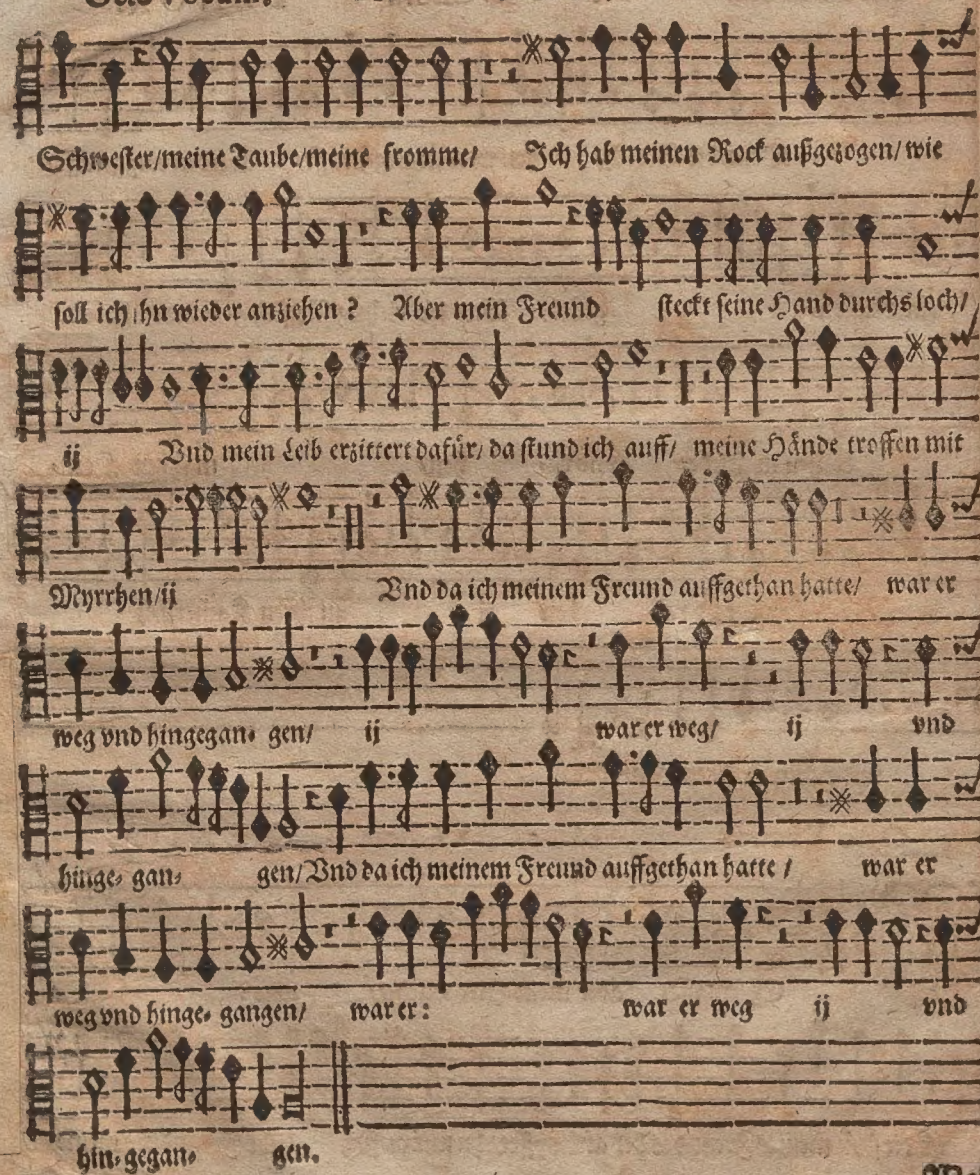 Schwester/meine Taube/meine fromme/ Ich hab meinen Rock außgezogen/ wie
soll ich ihn wieder anziehen ? Aber mein Freund steckt seine Hand durchs loch/
ij Vnd mein Leib erzittert dafür/ da stund ich auff/ meine Hände troffen mit
Myrrhen/ij Vnd da ich meinem Freund auffgethan hatte/ war er
weg vnd hingegan⸗ gen/ ij war er weg/ ij vnd
hinge⸗ gan⸗ gen/ Vnd da ich meinem Freund auffgethan hatte / war er
weg vnd hinge⸗ gangen/ war er : war er weg ij vnd
hin⸗gegan⸗ gen.